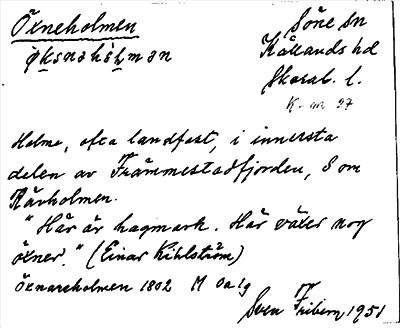 Öxneholmen
Söne sn
øksnəhȯl̥mən
Kållands hd
Skarab. l.
K. nr. 37
Holme, ofta landfast, i innersta
delen av Främmestadfjorden, S om
Råsholmen.
"Här är hagmark. Här växer nog
öxner." (Einar Kihlström)
Öxnareholmen 1802 M Oa 1g
Sven Friberg 1951